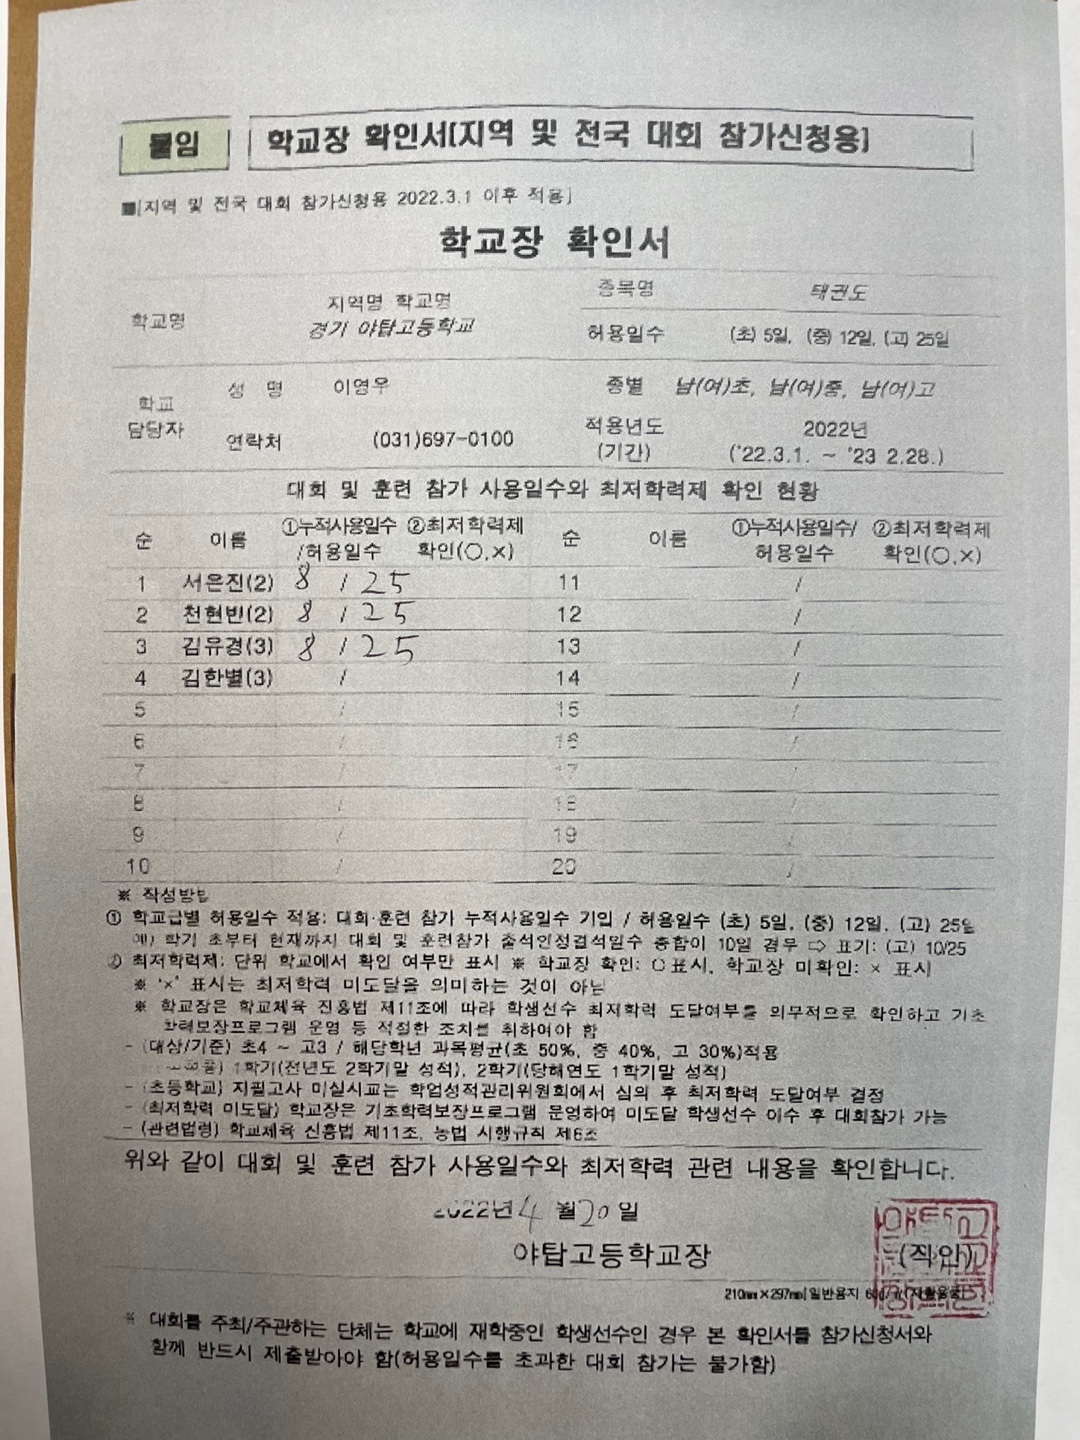 붙임
학교장 확인서[지역 및 전국 대회 참가신청용]
■[지역 및 전국 대회 참가신청용 2022.3.1 이후 적용]
학교장 확인서
학교명
지역명 학교명
경기 야탑고등학교
종목명
태권도
허용일수
(초) 5일, (중) 12일, (고) 25일
학교
담당자
성 명
이영우
연락처
(031)697-0100
종별
남(여)초, 남(여)중, 남(여)고
적용년도
(기간)
2022년
('22.3.1. ~ '23 2.28.)
대회 및 훈련 참가 사용일수와 최저학력제 확인 현황
순 이름 ①누적사용일수/허용일수 ②최저학력제 확인(○,×) 순 이름 ①누적사용일수/허용일수 ②최저학력제 확인(○,×)
1 서은진(2) 8 / 25 11 /
2 천현빈(2) 8 / 25 12 /
3 김유경(3) 8 / 25 13 /
4 김한별(3) / 14 /
5 / 15 /
6 / 16 /
7 / 17 /
8 / 18 /
9 / 19 /
10 / 20 /
※ 작성방법
① 학교급별 허용일수 적용: 대회·훈련 참가 누적사용일수 기입 / 허용일수 (초) 5일, (중) 12일, (고) 25일
예) 학기 초부터 현재까지 대회 및 훈련참가 출석인정결석일수 총합이 10일 경우 ⇨ 표기: (고) 10/25
② 최저학력제: 단위 학교에서 확인 여부만 표시 ※ 학교장 확인: ○표시, 학교장 미확인: × 표시
※ '×' 표시는 최저학력 미도달을 의미하는 것이 아님
※ 학교장은 학교체육 진흥법 제11조에 따라 학생선수 최저학력 도달여부를 의무적으로 확인하고 기초
학력보장프로그램 운영 등 적절한 조치를 취하여야 함
- (대상/기준) 초4 ~ 고3 / 해당학년 과목평균(초 50%, 중 40%, 고 30%)적용
1학기(전년도 2학기말 성적), 2학기(당해연도 1학기말 성적)
- (초등학교) 지필고사 미실시교는 학업성적관리위원회에서 심의 후 최저학력 도달여부 결정
- (최저학력 미도달) 학교장은 기초학력보장프로그램 운영하여 미도달 학생선수 이수 후 대회참가 가능
- (관련법령) 학교체육 진흥법 제11조, 동법 시행규칙 제6조
위와 같이 대회 및 훈련 참가 사용일수와 최저학력 관련 내용을 확인합니다.
2022년 4 월 20 일
야탑고등학교장
(직인)
210㎜×297㎜[일반용지
※ 대회를 주최/주관하는 단체는 학교에 재학중인 학생선수인 경우 본 확인서를 참가신청서와
함께 반드시 제출받아야 함(허용일수를 초과한 대회 참가는 불가함)